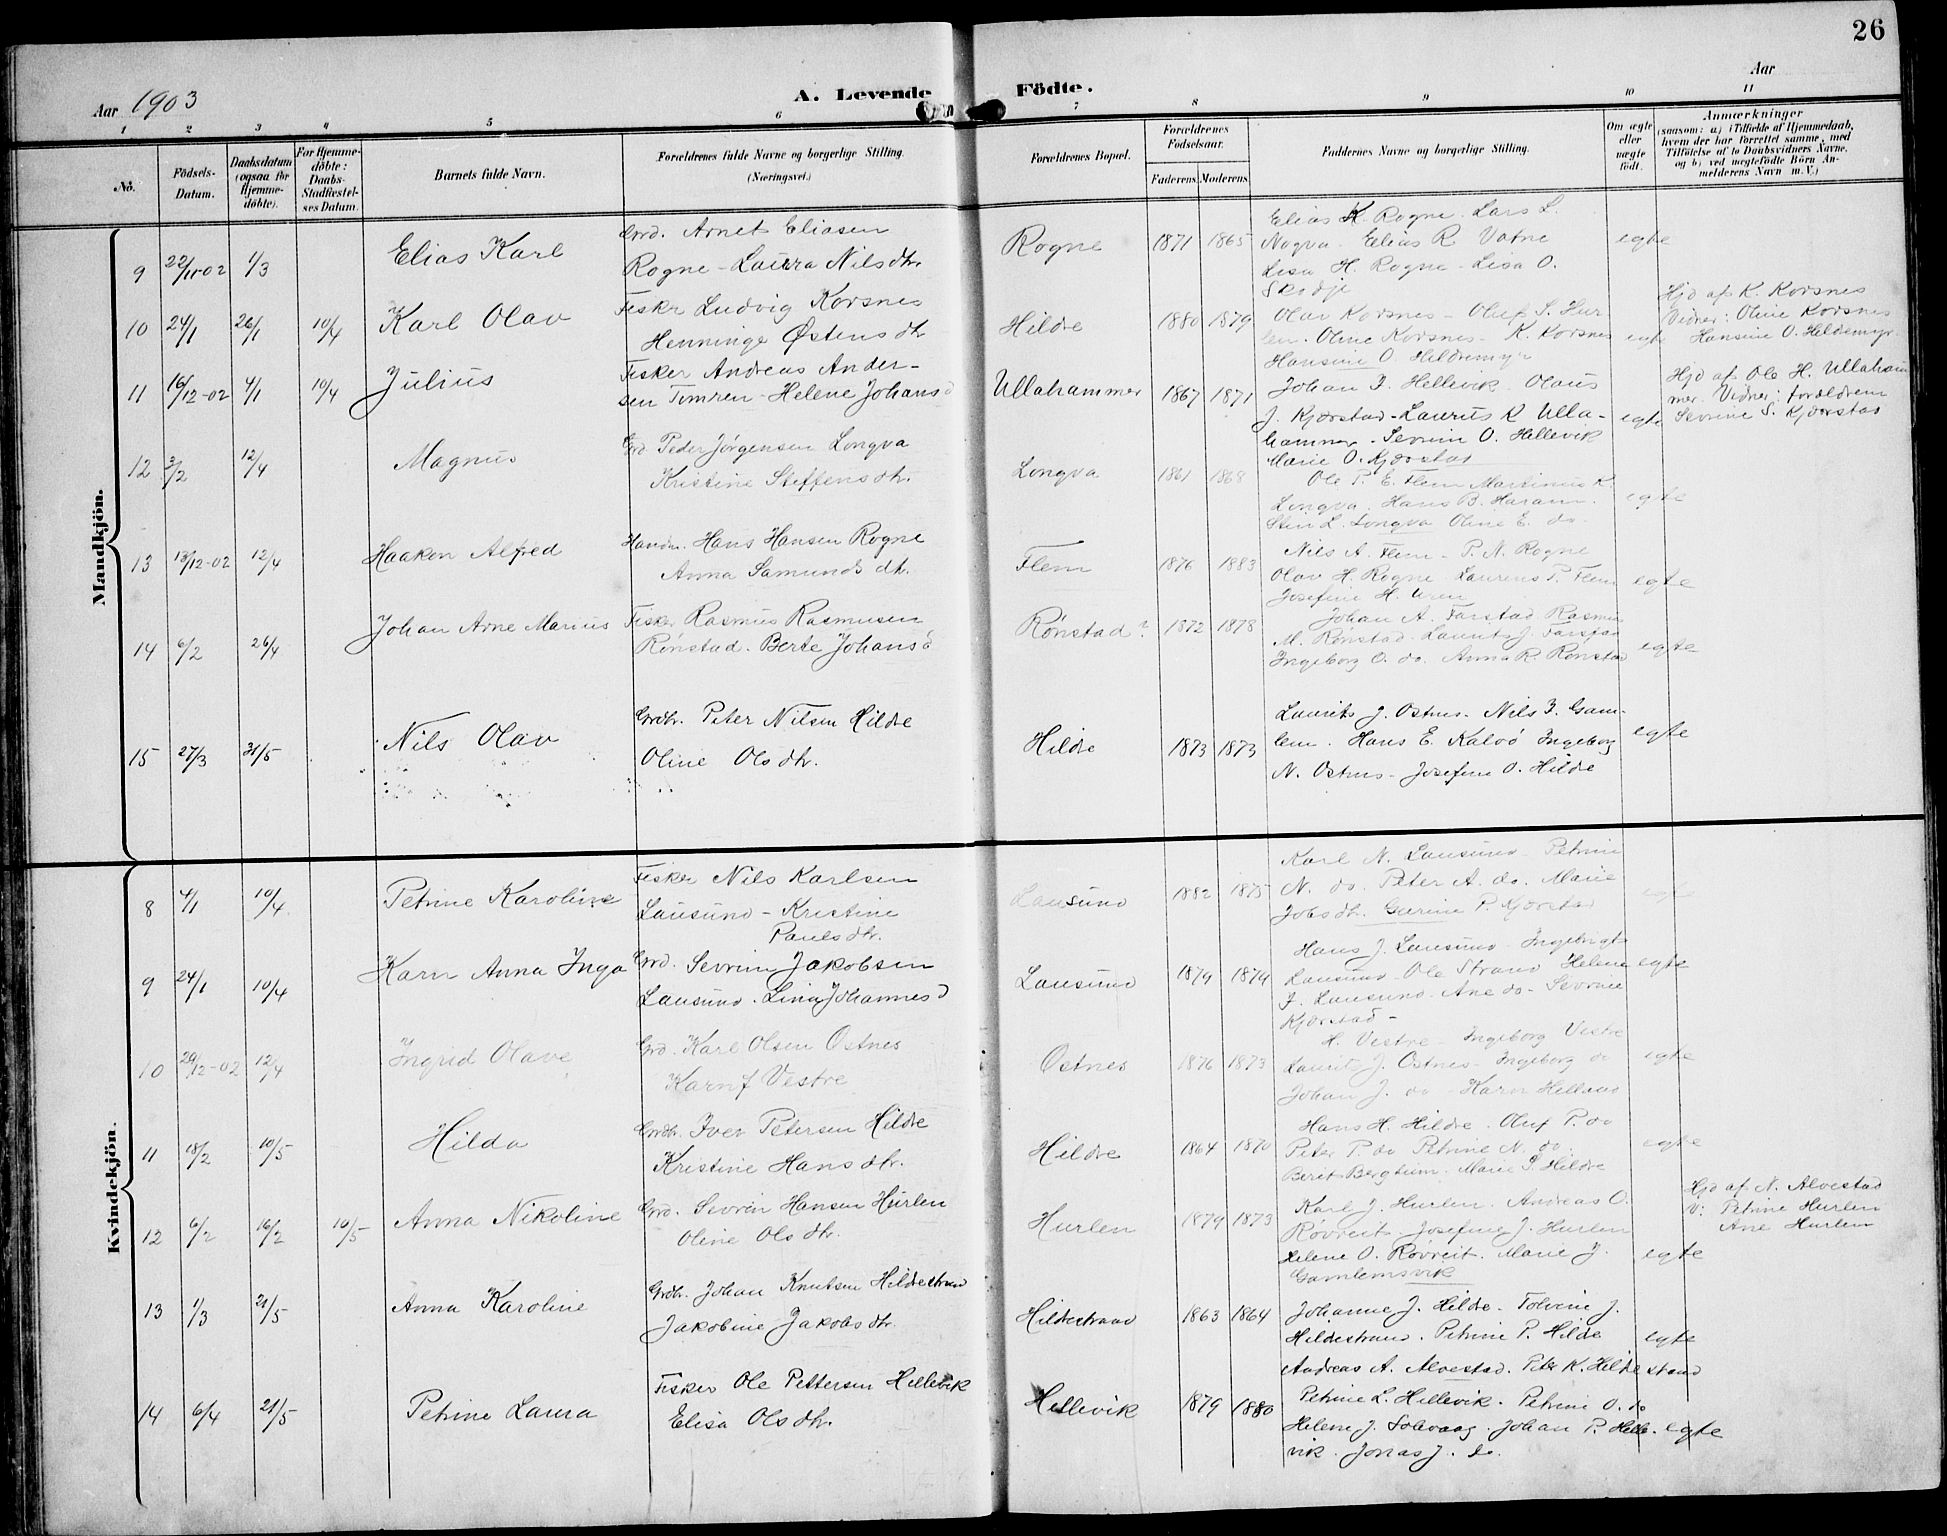 26
Aar 1903
A. Levende Födte.
Aar
1 2 3 4 5 6 7 8 9 10 11
No.
Födsels-
Datum.
Daabsdatum
(ogsaa for
Hjemme-
döbte).
For Hjemme-
döbte:
Daabs-
Stadfæstel-
ses Datum.
Barnets fulde Navn.
Forældrenes fulde Navne og borgerlige Stilling.
(Næringsvei.)
Forældrenes Bopæl.
Forældrenes
Födselsaar.
Faderens. Moderens.
Faddernes Navne og borgerlige Stilling.
Om ægte
eller
uægte
födt.
Anmærkninger
(saasom: a) i Tilfælde af Hjemmedaab,
hvem der har forrettet samme, med
Tilföielse af to Daabsvidners Navne,
og b) ved uægtefödte Börn An-
melderens Navn m. V.)
Mandkjön.
9 22/11-02 1/3
Elias Karl
Grd. Arnet Eliasen
Rogne - Laura Nilsdtr.
Rogne 1871 1865
Elias K. Rogne. Lars L.
Nogva. Elias R. Vatne
Lisa H. Rogne. Lisa O.
Skodje
egte
10 24/1 26/1 10/4
Karl Olav
Fisker Ludvig Korsnes
Henninge Østensdtr
Hildre 1880 1879
Olav Korsnes - Oluf S. Hur
len. Oline Korsnes - K. Korsnes
Hansine O. Hildremyr
egte
Hjd af K. Korsnes
Vidner: Oline Korsnes
Hansine O. Hildremyr
11 16/12-02 4/1 10/4
Julius
Fisker Andreas Ander-
sen Timren - Helene Johansd
Ullahammer 1867 1871
Johan J. Hellevik. Olaus
J. Kjørstad - Laurits K. Ulla-
hammer. Sevrin O. Hellevik
Marie O. Kjørstad
egte
Hjd af Ole H. Ullaham
mer. Vidner: forældrene
Sevrine S. Kjørstad
12 3/2 12/4
Magnus
Grd Peder Jørgensen Longva
Kristine Steffensdtr.
Longva 1861 1868
Ole P. E. Flem Martinus K.
Longva. Hans B. Haram.
Stin L. Longva Oline E. do.
egte
13 13/12-02 12/4
Haakon Alfred
Handm. Hans Hansen Rogne
Anna Samundsdtr.
Flem 1876 1883
Nils A. Flem - P. N. Rogne
Olav H. Rogne. Laurens P. Flem
Josefine H. Uren
egte
14 6/2 26/4
Johan Arne Marius
Fisker Rasmus Rasmusen
Rønstad. Berte Johansd
Rønstad? 1872 1878
Johan A. Farstad Rasmus
M. Rønstad. Laurits J. Farstad
Ingeborg O. do. Anna R. Rønstad
egte
15 27/3 31/5
Nils Olav
Grdbr. Peter Nilsen Hildre
Oline Olsdtr.
Hildre 1873 1873
Laurits J. Ostnes. Nils J. Gam-
lem. Hans E. Kalvø Ingeborg
N. Ostnes - Josefine O. Hildre
egte
Kvindekjön.
8 4/1 10/4
Petrine Karoline
Fisker Nils Karlsen
Lausund - Kristine
Paulsdtr.
Lausund 1882 1875
Karl N. Lausund. Petrine
N. do. Peter A. do. Marie
Jobsdtr. Gurine P. Kjørstad
egte
9 24/1 10/4
Karn Anna Inga
Grd. Sevrin Jakobsen
Lausund. Lina Johannesd
Lausund 1879 1874
Hans J. Lausund - Ingebrigt
Lausund - Ole Strand Helene
J. Lausund - Ane do - Sevrine
Kjørstad -
egte
10 29/12-02 12/4
Ingrid Olave
Grd. Karl Olsen Ostnes
Karn J Vestre
Ostnes 1876 1873
H. Vestre - Ingeborg Vestre
Laurits J. Ostnes - Ingeborg do
Johan J. do - Karn Helland
egte
11 18/2 10/5
Hilda
Grdbr. Iver Petersen Hildre
Kristine Hansdtr.
Hildre 1864 1870
Hans H. Hildre. Oluf P. do
Peter P. do Petrine N. do.
Berit Bergheim. Marie P. Hildre
egte
12 6/2 16/2 10/5
Anna Nikoline
Grd. Sevrin Hansen Hurlen
Oline Olsdtr.
Hurlen 1879 1873
Karl J. Hurlen. Andreas O.
Røvreit. Josefine J. Hurlen
Helene O. Røvreit. Marie J.
Gamlemsvik
egte
Hjd af N. Alvestad
V: Petrine Hurlen
Ane Hurlen
13 1/3 21/5
Anna Karoline
Grdb. Johan Knutsen Hildrestrand
Jakobine Jakobsdtr.
Hildrestrand 1863 1864
Johanne J. Hildre. Tolvine J.
Hildestrand. Petrine P. Hildre
Andreas A. Alvestad. Petr K. Hildrestrand
egte
14 6/4 21/5
Petrine Laura
Fisker Ole Pettersen Hellevik
Elisa Olsdtr.
Hellevik 1879 1880
Petrine L. Hellevik. Petrine O. do
Helene J. Solvaag. Johan P. Helle-
vik. Jonas J. do.
egte